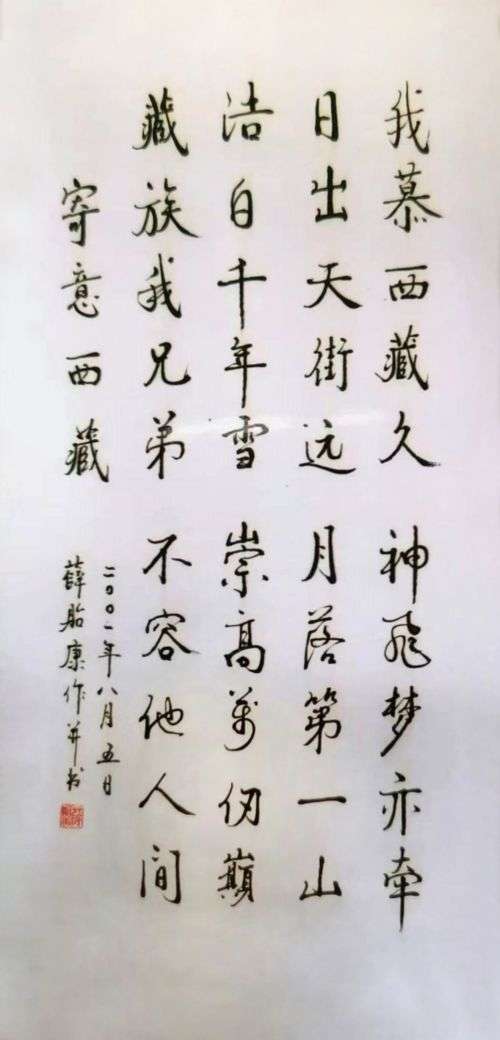 我慕西藏久 神飞梦亦牵
日出天街远 月落第一山
洁白千年雪 崇高万仞巅
藏族我兄弟 不容他人间
寄意西藏
二〇〇一年八月五日
薛贻康作并书